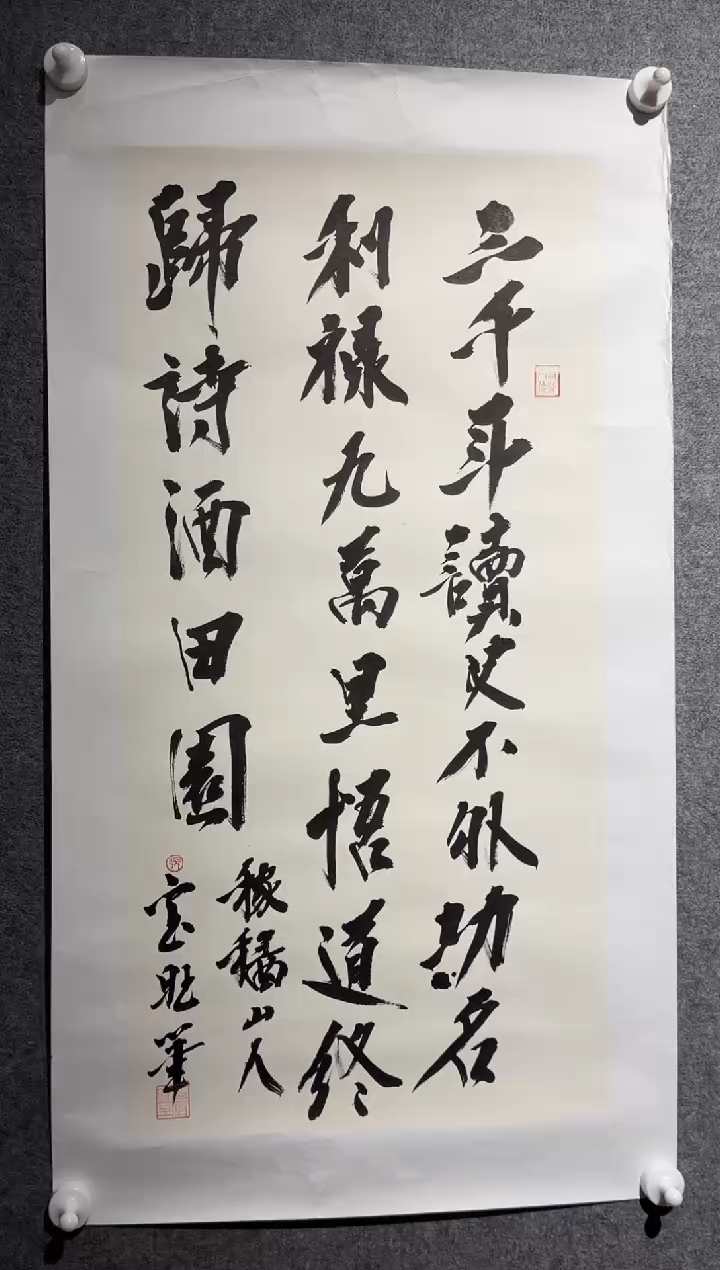 三千年讀史不外功名
利祿九萬里悟道終
歸詩酒田園
稼穡山人
宝旺筆